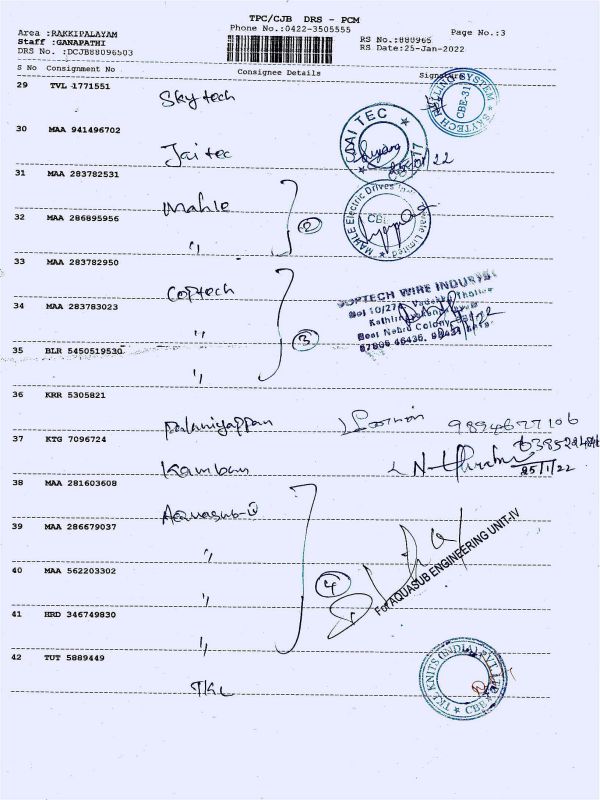 TPC/CJB DRS - PCM
Area :RAKKIPALAYAM Phone No.:0422-3505555 Page No.:3
Staff :GANAPATHI RS No.:880965
DRS No. :DCJB88096503 RS Date:25-Jan-2022
S No Consignment No Consignee Details Signature
29 TVL 1771551
Skytech
SKYTECH SYSTEM CBE-31
30 MAA 941496702
Jaitec
31 MAA 283782531
Mahle
MAHLE Electric Drives Private Limited
32 MAA 286895956
"
2
33 MAA 283782950
Coptech
COPTECH WIRE INDUSTRY
34 MAA 283783023
"
35 BLR 5450519530
"
3
36 KRR 5305821
Palaniyappan 9894677106
37 KTG 7096724
Kamban 25/1/22
38 MAA 281603608
Aquasub-IV
39 MAA 286679037
"
For AQUASUB ENGINEERING UNIT-IV
40 MAA 562203302
"
4
41 HRD 346749830
"
42 TUT 5889449
TKL
TKL KNITS (INDIA) PVT LTD CBE